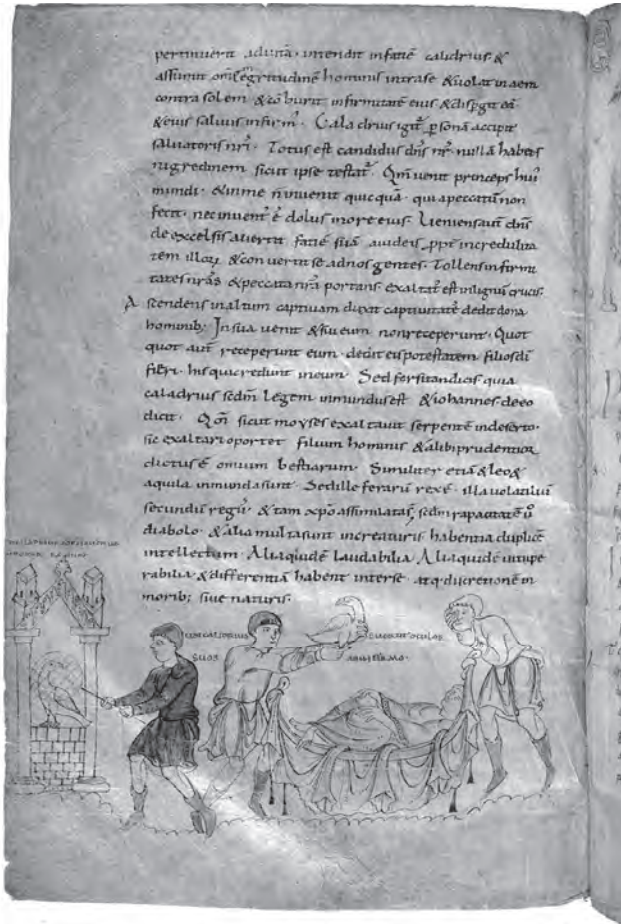 pertinuerit aduitā· intendit infatiē caladrius·&
assumit omēs egritudinē hominis intrase &uolat inaera
contra solem &cōburit infirmitatē eius &dispgit eā
&eius saluus infirm̄· Caladrius igit̄ psonā accipit
saluatoris nr̄i· Totus est candidus dn̄s nr̄ nullā habens
nigredinem sicut ipse testat̄· Qm̄ uenit princeps hui
mundi· &inme n̄inuenit quicquā· qui apeccatū non
fecit· nec inuent̄ ē dolus inore eius· Ueniens aut dn̄s
de excelsis auertit fatiē suā aiudeis ppt incredulita
tem illoꝝ &conuertit se adnos gentes· Tollens infirmi
tates nr̄as &peccata nr̄a portans· exaltat̄ est inlignū crucis·
Ascendens inaltum captiuam duxit captiuitatē dedit dona
hominib; Insua uenit &sui eum nonreceperunt· Quot
quot aut receperunt eum· dedit eis potestatem filios dī
fieri· his qui credunt ineum· Sed forsitan dicis quia
caladrius scdm̄ legem inmundus est &iohannes deeo
dicit· Qm̄ sicut moyses exaltauit serpentē indeserto·
sic exaltari oportet filium hominis &alibi prudentior
dictus ē omnium bestiarum· Similiter etiā &leo&
aquila inmunda sunt· Sed ille ferarū rex ē· illa uolatiliū
secundū regiū· &tam xp̄o assimulata scdm̄ rapacitatē ū
diabolo· &alia multa sunt increaturis habentia duplicē
intellectum· Alia quidē laudabilia Alia quidē uitupe
rabilia &differentiā habent interse· atq; discretionē in
morib; siue naturis·
oculos
suos